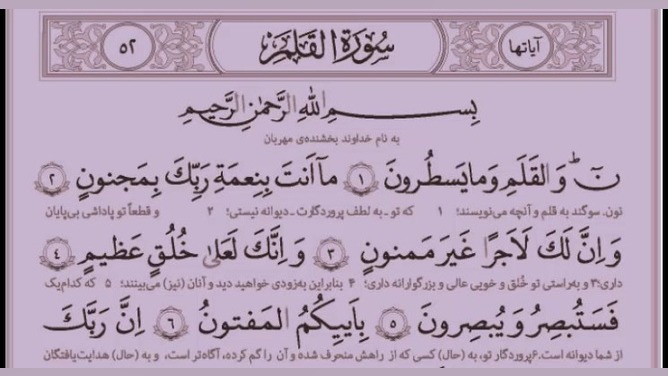 آیاتها سُورَةُ القَلَمِ ٥٢
بِسمِ اللهِ الرَّحمٰنِ الرَّحیمِ
به نام خداوند بخشنده‌ی مهربان
نٓ وَالقَلَمِ وَمایَسطُرونَ ١ مآاَنتَ بِنِعمَةِ رَبِّكَ بِمَجنونٍ ٢
نون. سوگند به قلم و آنچه می‌نویسند؛ ١ که تو ـ به لطف پروردگارت ـ دیوانه نیستی؛ ٢ و قطعاً تو پاداشی بی‌پایان
وَاِنَّ لَكَ لَاَجرًا غَیرَ مَمنونٍ ٣ وَاِنَّكَ لَعَلىٰ خُلُقٍ عَظیمٍ ٤
داری؛ ٣ و به‌راستی تو خُلق و خویی عالی و بزرگوارانه داری؛ ٤ بنابراین به‌زودی خواهید دید و آنان (نیز) می‌بینند؛ ٥ که کدام‌یک
فَسَتُبصِرُ وَیُبصِرونَ ٥ بِاَییِكُمُ المَفتونُ ٦ اِنَّ رَبَّكَ
از شما دیوانه است. ٦ پروردگار تو، به (حال) کسی که از راهش منحرف شده و آن را گم کرده، آگاه‌تر است، و به (حال) هدایت‌یافتگان